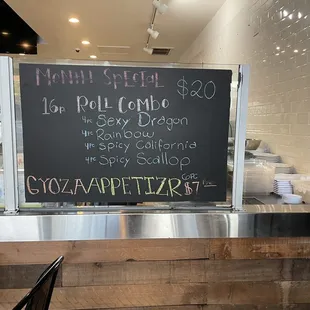 Month Special $20
16pc Roll Combo
4pc Sexy Dragon
4pc Rainbow
4pc Spicy California
4pc Spicy Scallop
GYOZA APPETIZR 6pc $7